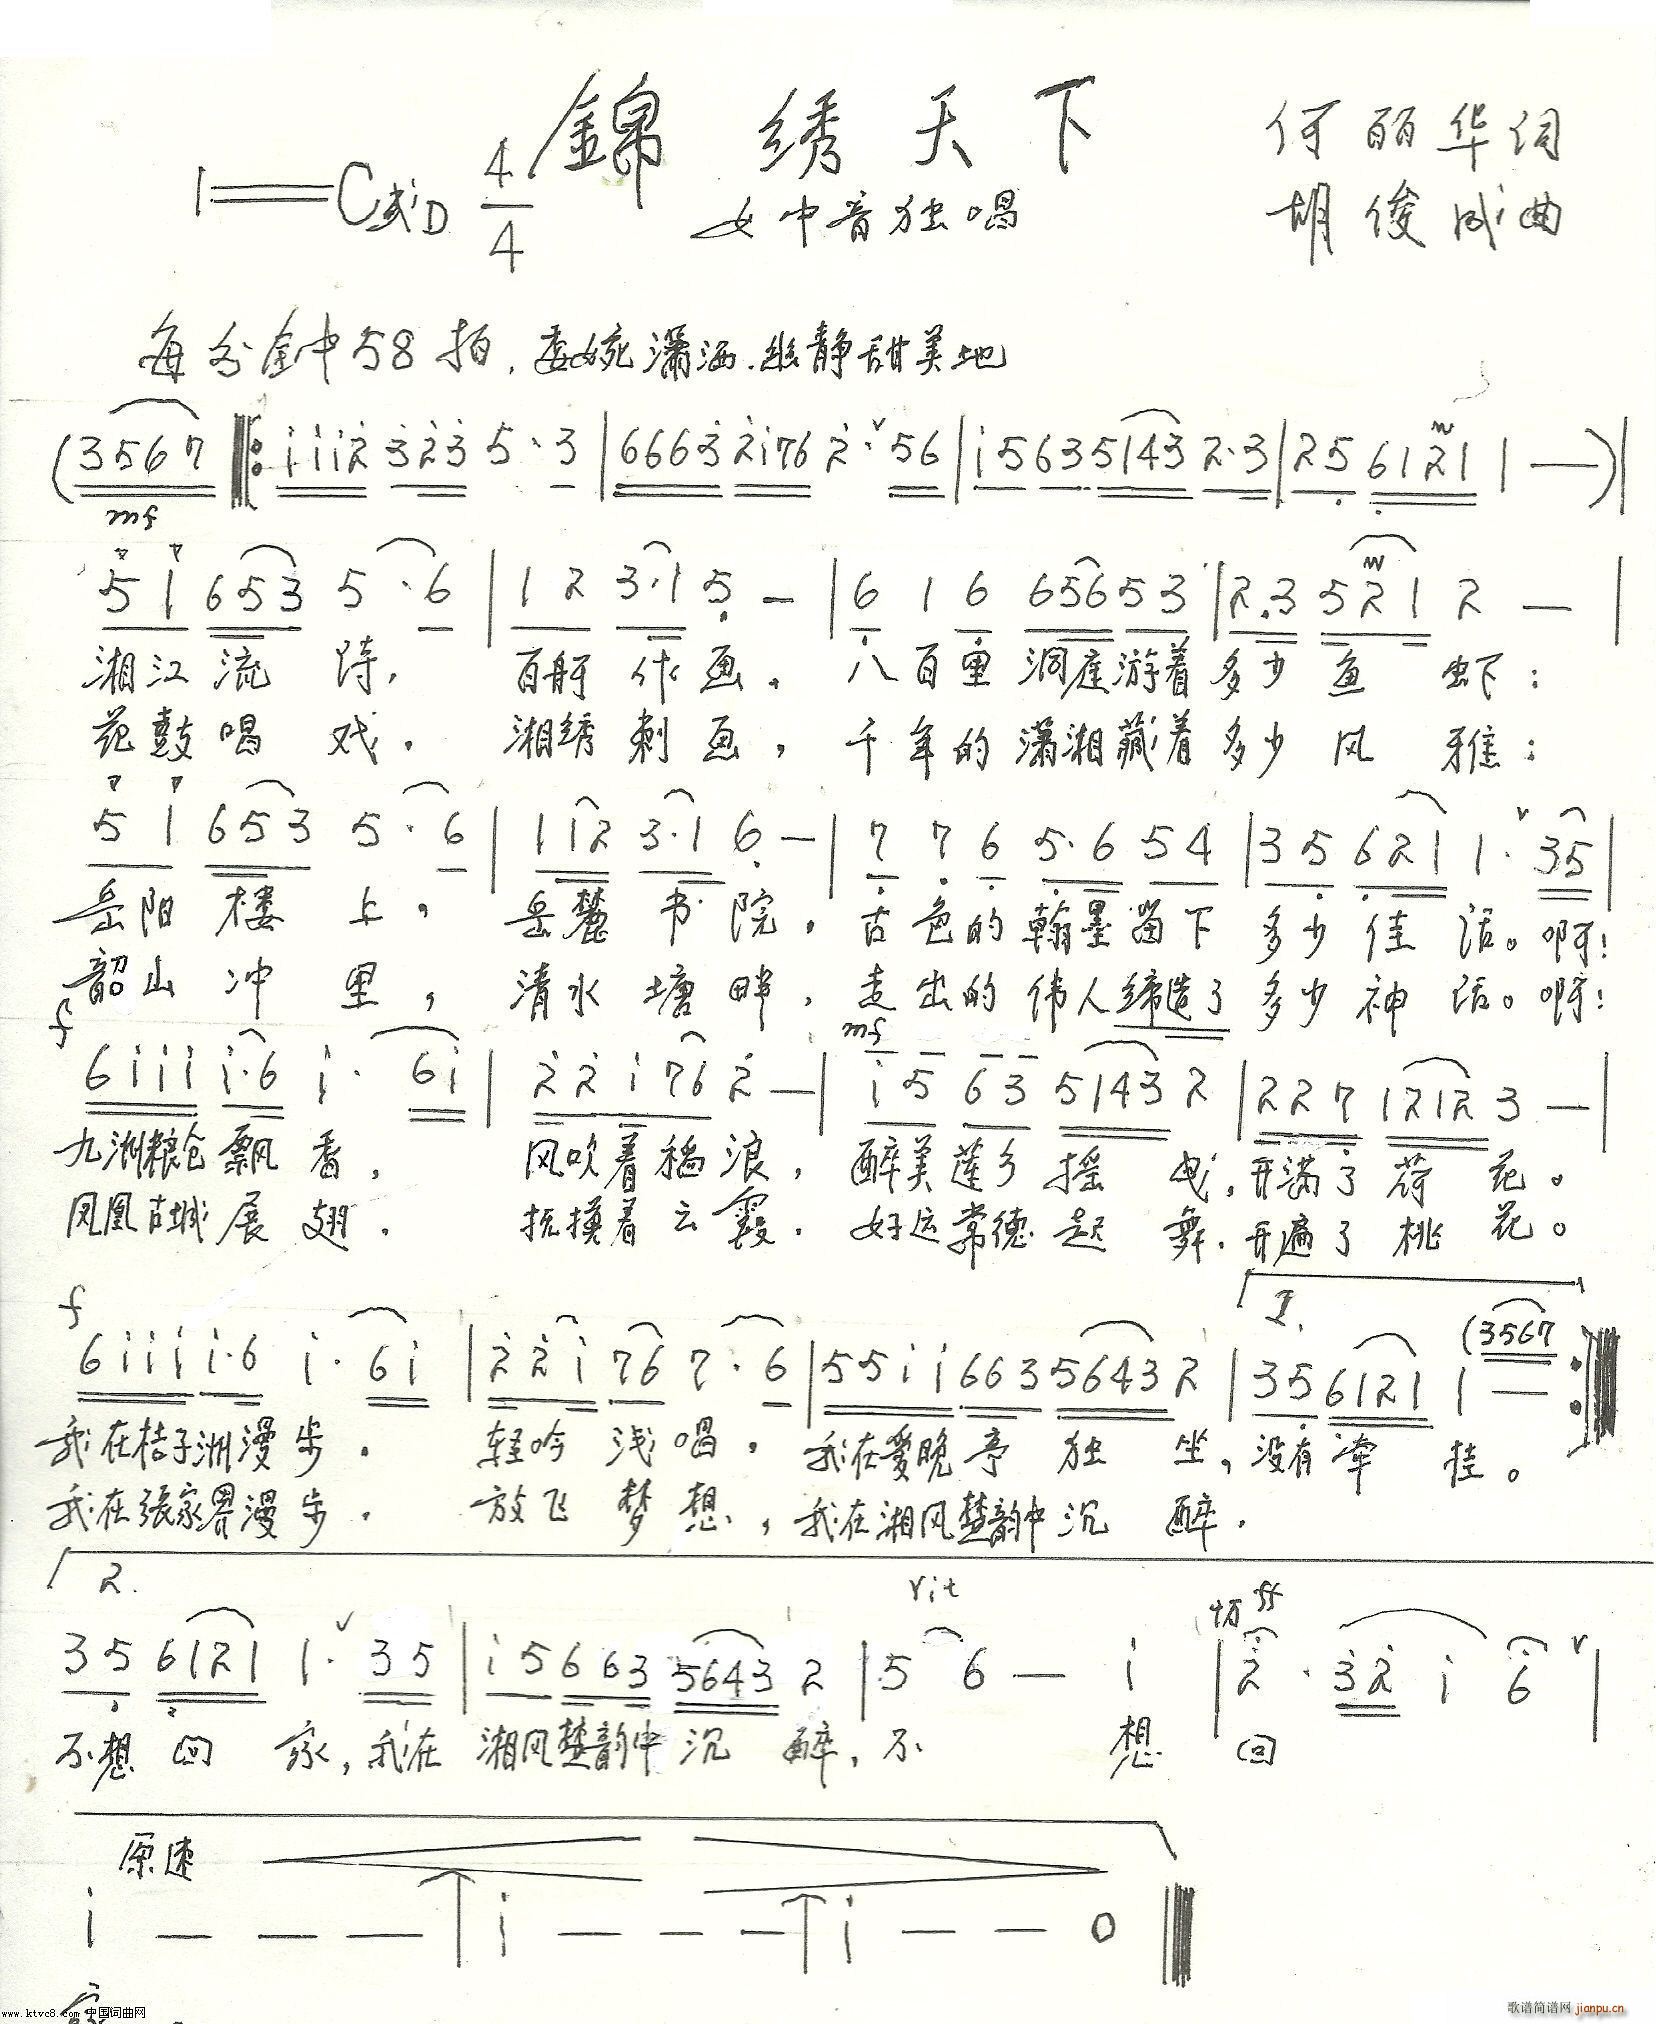 錦绣天下
何丽华词
1=C或D 4/4
女中音独唱
胡俊成曲
每分钟58拍，委婉潇洒、幽静甜美地
(3567 ‖: i i i 2 3 2 3 5 · 3 | 6 6 6 3 2 i 7 6 2 · 5 6 | i 5 6 3 5 1 4 3 2 · 3 | 2 5 6 1 2 1 1 — )|
mf
5 1 6 5 3 5 · 6 | 1 2 3 · 1 5 — | 6 1 6 6 5 6 5 3 | 2 · 3 5 2 1 2 — |
湘江流诗，百舸作画。八百里洞庭游着多少鱼虾；
花鼓唱戏，湘绣刺画，千年的潇湘藏着多少风雅；
5 1 6 5 3 5 · 6 | 1 1 2 3 · 1 6 — | 7 7 6 5 · 6 5 4 | 3 5 6 2 1 1 · 3 5 |
岳阳楼上，岳麓书院，古色的翰墨留下多少佳话。啊！
韶山冲里，清水塘畔，走出的伟人缔造了多少神话。啊！
f mf
6 i i i i · 6 i · 6 i | 2 2 i 7 6 2 — | i 5 6 3 5 1 4 3 2 | 2 2 7 1 2 1 2 3 — |
九洲粮仓飘香，风吹着稻浪，醉美莲乡摇曳，开满了荷花。
凤凰古城展翅，抚摸着云霞，好运常德起舞，开遍了桃花。
f 1. (3567
6 i i i i · 6 i · 6 i | 2 2 i 7 6 7 · 6 | 5 5 i i 6 6 3 5 6 4 3 2 | 3 5 6 1 2 1 1 — :‖
我在桔子洲漫步，轻吟浅唱，我在爱晚亭独坐，没有牵挂。
我在张家界漫步，放飞梦想，我在湘风楚韵中沉醉，
2. rit ff
3 5 6 1 2 1 1 · 3 5 | i 5 6 6 3 5 6 4 3 2 | 5 6 — i | 2 · 3 2 i 6 |
不想回家，我在湘风楚韵中沉醉，不想回
原速
i — — — i — — — i — — 0 ‖
家。
www.ktvc8.com 中国词曲网
歌谱简谱网 jianpu.cn